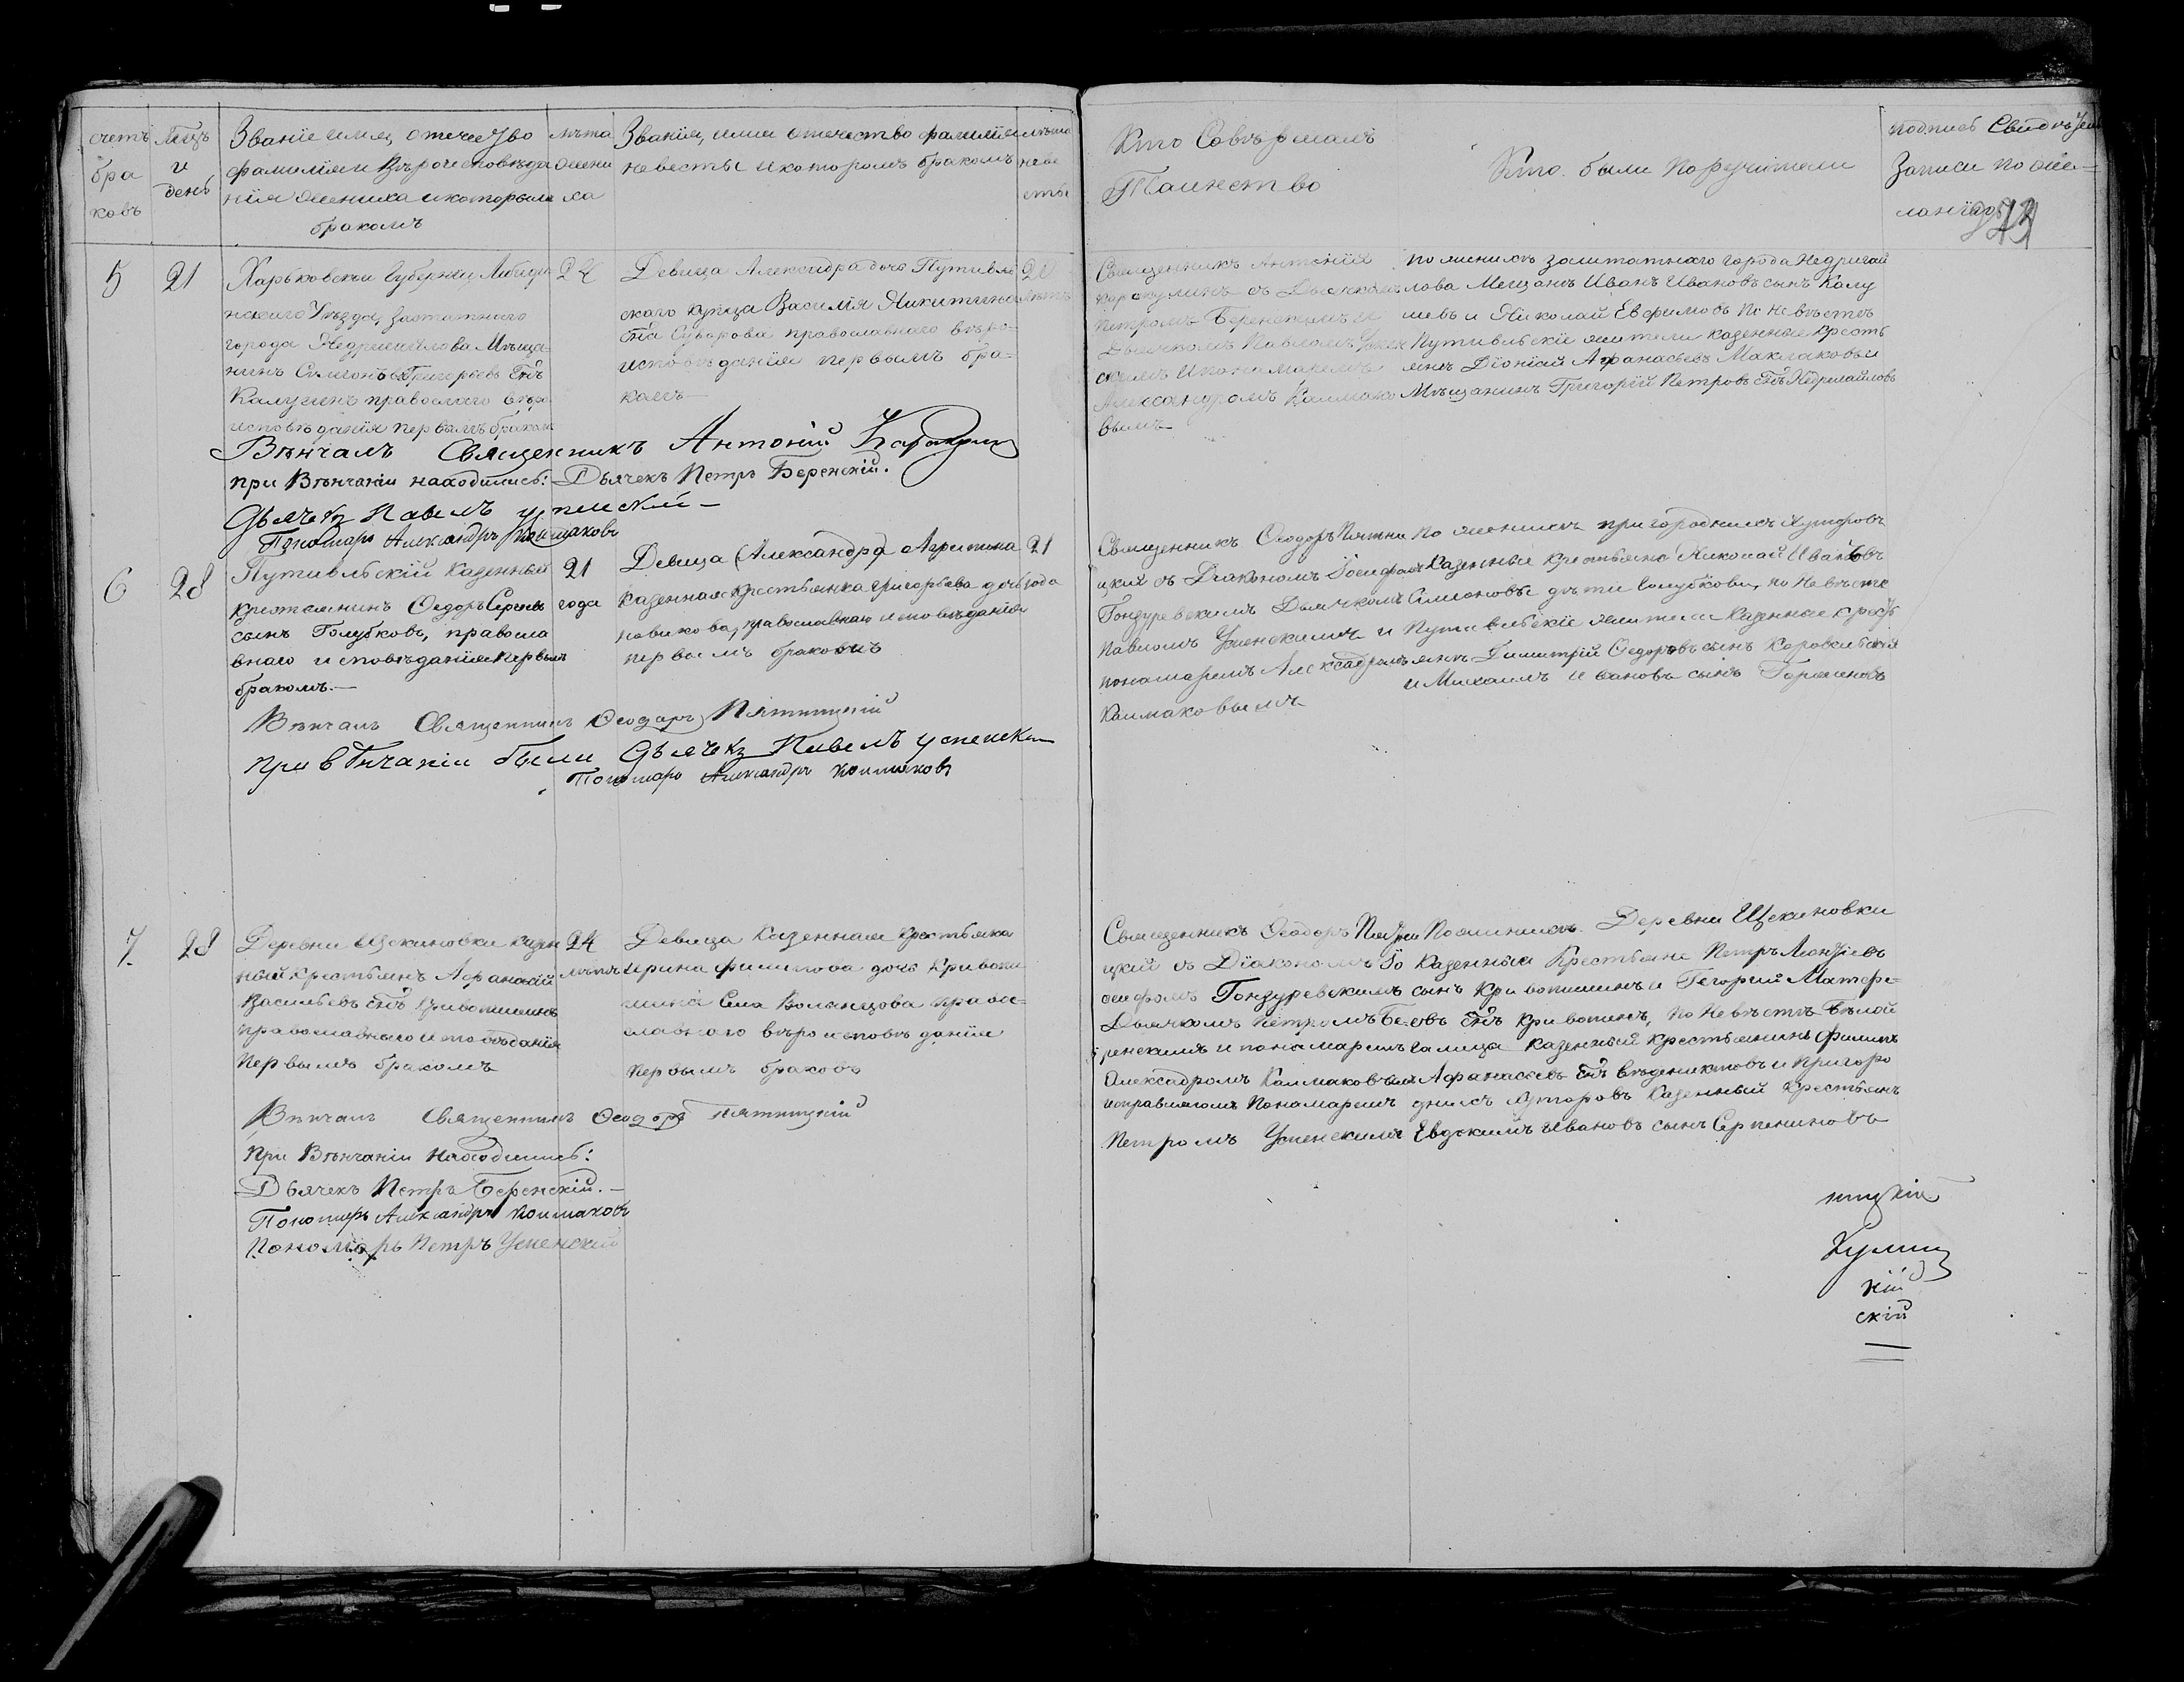 счетъ
бра
ковъ
мцъ
и
день
Званіе имя, отечество
фамилія и вѣроисповѣда
нія жениха и которымъ
бракомъ
лѣта
жени
ха
Званія, имя отечество фамилія
невесты и которомъ бракомъ
лѣта
неве
сты
Кто Совѣршалъ
Таинство
Кто были Поручители
подпись Свидѣтел
Записи по же=
ланію
5
21
Харьковской Губерніи Лебеди
нскаго Уѣзда, Заштатнаго
города Недригайлова Мѣща
нинъ Симіонъ Григорьевъ снъ
Калушенъ православнаго вѣро
исповѣданія первымъ бракомъ
Девица Александра дочь Путивль
скаго купца Василія Никитина
сна Суворова православнаго вѣро=
исповѣданія первымъ бра=
комъ
лѣтъ
Священникъ Антоній
Каракулинъ съ Дьячкомъ
Петромъ Беренскимъ и
Дьячкомъ Павломъ Успен
скимъ и понамаремъ
Александромъ Калмако
вымъ
по женихѣ заштатнаго города Недригай
лова Мещанъ Иванъ Ивановъ сынъ Калу
шевъ и Николай Евфимовъ По невѣстѣ
Путивльскіе жители казенные кресть
янъ Діонісій Афанасьевъ Маклаковъ и
Мѣщанинъ Григорій Петровъ снъ Недригайловъ
Вѣнчалъ Священникъ Антоній Каракулинъ
при Вѣнчаніи находились: Дьячекъ Петръ Беренскій.
Дьячекъ Павелъ успенскій
Пономарь Александръ Колмаковъ
6
28
Путивльскій казенный
крестьянинъ Ѳедоръ Сергѣевъ
сынъ Голубковъ, правосла
внаго исповѣданія первымъ
бракомъ.
21
года
Девица (Александра) Агрипина
казенная крестьянка Григорьева дочь
Новикова, православнаго исповѣданія
первымъ бракомъ
21
года
Священникъ Ѳеодоръ Пятни
цкій съ Діакономъ Іосифомъ
Гонзуревскимъ Дьячкомъ
Павломъ Успенскимъ и
понамаремъ Александромъ
Калмаковымъ
По женихѣ пригородныхъ хуторовъ
Казенные Крестьяна Николай Ивановъ
Симіоновы дѣти Голубковы, по Невѣсте
Путивльскіе жители казенные кресть
янъ Димитрій Ѳедоровъ сынъ Коровельской
и Михаилъ Ивановъ сынъ Горяиновъ
Вѣнчалъ Священникъ Ѳеодоръ Пятницкій
при вѣнчаніи были Дьячекъ Павелъ успенскій
Пономарь Александръ Колмаковъ
7.
28
Деревни Щекиновки казен
ный крестьянъ Афанасій
Васильевъ снъ Кривошинъ
православнаго исповѣданія
первымъ бракомъ
24
лѣтъ
Девица казенная крестьянка
Ирина Филипова дочь Кривоши
шина Села Волынцова право=
славнаго вѣроисповѣданія
первымъ браковъ
Священникъ Ѳеодоръ Пятни
цкій съ Діакономъ Іо
сифомъ Гонзуревскимъ
Дьячкомъ Петромъ Бе
ренскимъ и понамаремъ
Александромъ Калмаковымъ
исправляющ Понамаремъ
Петромъ Успенскимъ
По женихѣ Деревни Щекиновки
казенныя Крестьяне Петръ Леонтіевъ
сынъ Кривошишинъ и Георгій Матфе=
евъ снъ Кривошинъ, По Невѣстѣ Бѣлой
галица казенный крестьянинъ Филипъ
Афанасьевъ снъ Вѣдениктовъ и Пригоро
дныхъ хуторовъ Казенный крестьянъ
Евдокимъ Ивановъ сынъ Серпениновъ
Вѣнчалъ Священникъ Ѳеодоръ Пятницкій
При Вѣнчаніи Находились:
Дьячекъ Петръ Беренскій.
Пономарь Александръ Колмаковъ
Пономарь Петръ Успенскій
ницкій
Кулинъ
кій
скій